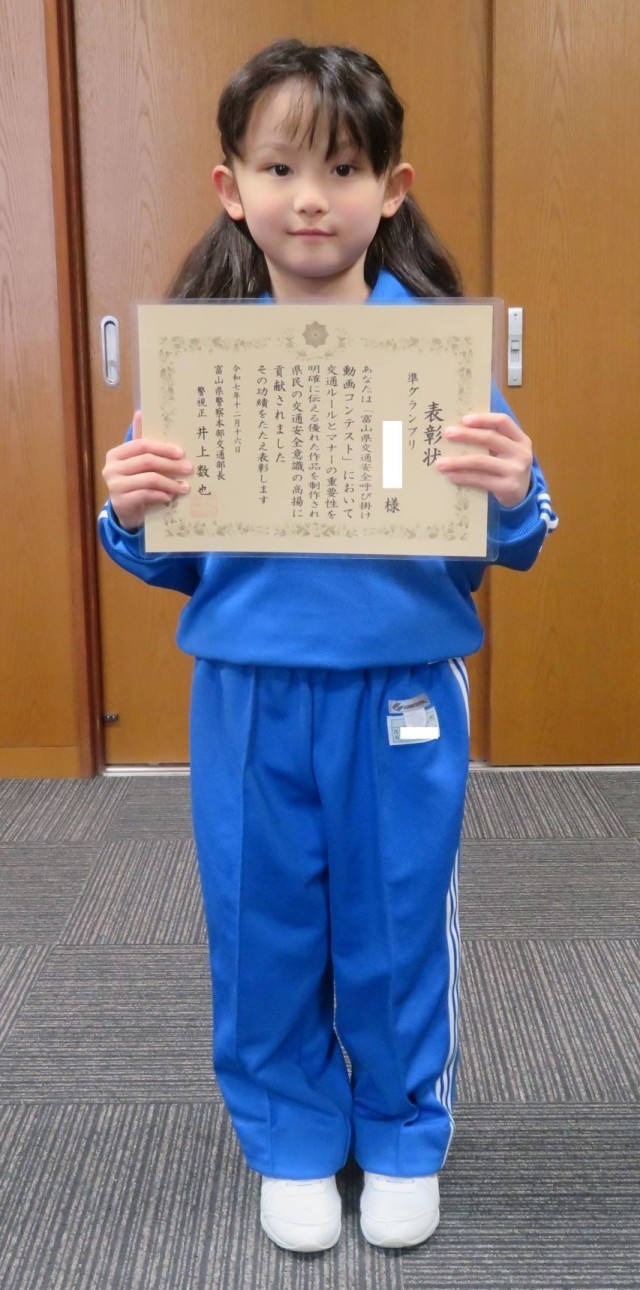 表彰状
準グランプリ
様
あなたは「富山県交通安全呼び掛け
動画コンテスト」において
交通ルールとマナーの重要性を
明確に伝える優れた作品を制作され
県民の交通安全意識の高揚に
貢献されました
その功績をたたえ表彰します
令和七年十二月十六日
富山県警察本部交通部長
警視正 井上数也